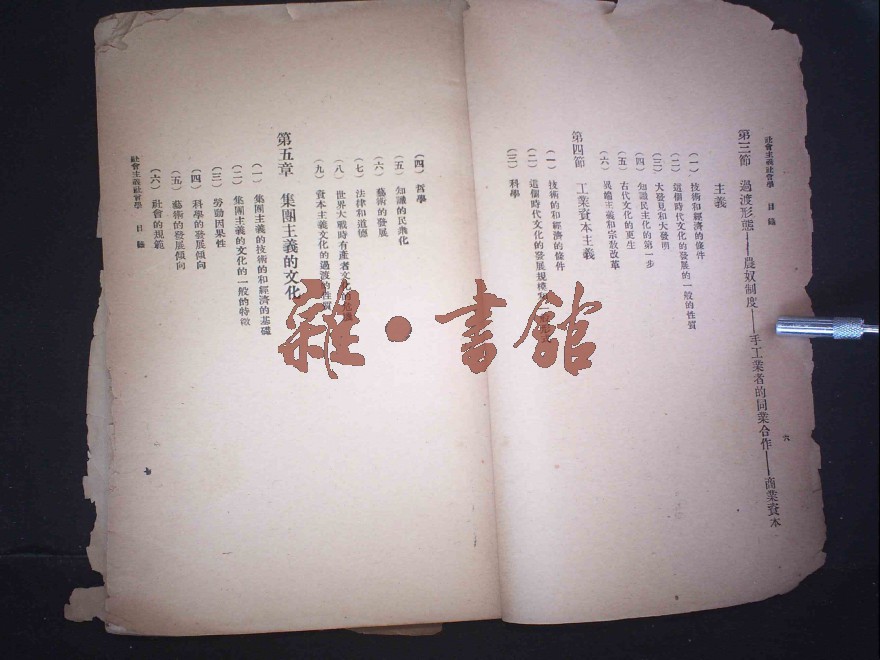 社會主義社會學 目錄
第三節 過渡形態——農奴制度——手工業者的同業合作——商業資本
主義
(一) 技術和經濟的條件
(二) 這個時代文化的發展的一般的性質
(三) 大發見和大發明
(四) 知識民主化的第一步
(五) 古代文化的更生
(六) 異端主義和宗教改革
第四節 工業資本主義
(一) 技術的和經濟的條件
(二) 這個時代文化的發展規模和
(三) 科學
六
(四) 哲學
(五) 知識的民衆化
(六) 藝術的發展
(七) 法律和道德
(八) 世界大戰時有產者文化的
(九) 資本主義文化的過渡的性質
第五章 集團主義的文化
(一) 集團主義的技術的和經濟的基礎
(二) 集團主義的文化的一般的特徵
(三) 勞動因果性
(四) 科學的發展傾向
(五) 藝術的發展傾向
(六) 社會的規範
社會主義社會學 目錄
七
雜·書館